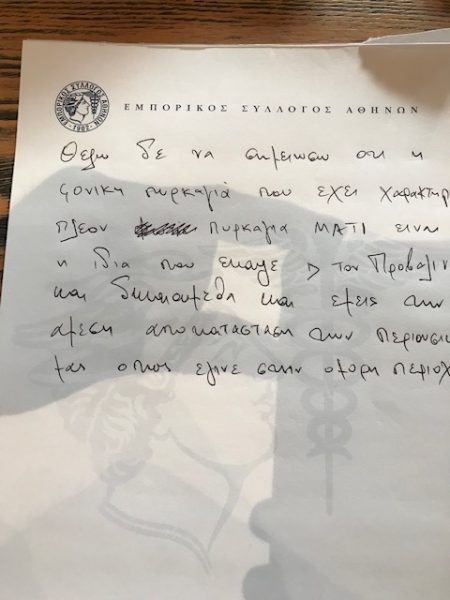 ΕΜΠΟΡΙΚΟΣ ΣΥΛΛΟΓΟΣ ΑΘΗΝΩΝ
ΕΜΠΟΡΙΚΟΣ ΣΥΛΛΟΓΟΣ ΑΘΗΝΩΝ
1902
Θελω δε να σημειωσω οτι η
φονικη πυρκαγιά που εχει χαρακτηρ
πλεον πυρκαγια ΜΑΤΙ ειναι
η ιδια που εκαψε τον Προβαλιν
και δικαιουμεθα και εμεις την
αμεση αποκατασταση των περιουσι
μας οπως εγινε στην ομορη περιοχ